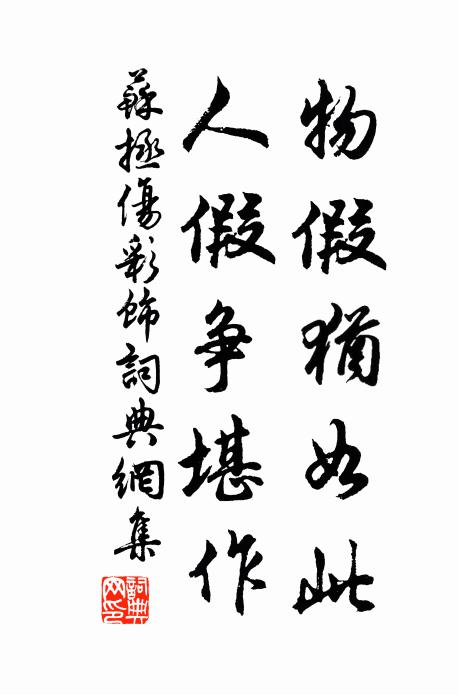 物假猶如此
人假争堪作
蘇拯傷彩飾詞典網集
詞典
网印